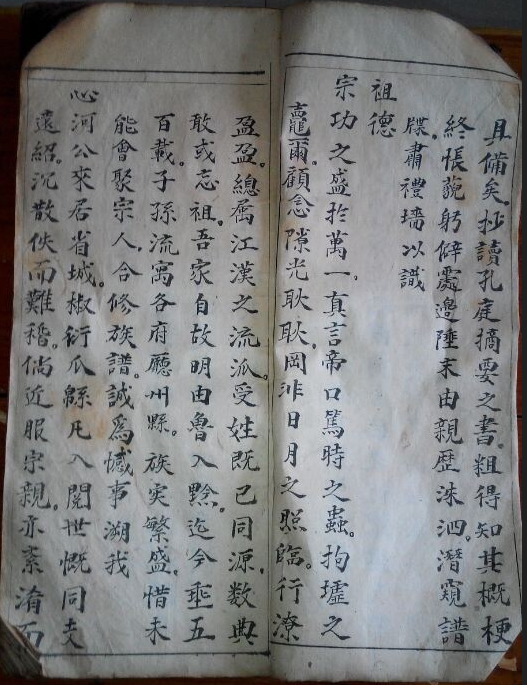 具備矣。抄讀孔庭摘要之書。粗得知其概梗
終悵藐躬僻處邊陲末由親歷洙泗。潛窺譜
牒。肅禮墻以識
祖德
宗功之盛於萬一。真言帝口篤時之蟲。拘墟之
鼃爾。顧念隙光耿耿。罔非日月之照臨。行潦
盈盈。總屬江漢之流派。受姓既已同源。數典
敢或忘祖。吾家自故明由魯入黔。迄今垂五
百載。子孫流寓各府廳州縣。族实繁盛。惜未
能會聚宗人。合修族譜。誠為憾事溯我
心河公來居省城。椒衍瓜緜凡入閱世慨同
遠紹。沉散佚而難稽。倘近服宗親。亦紊淆而